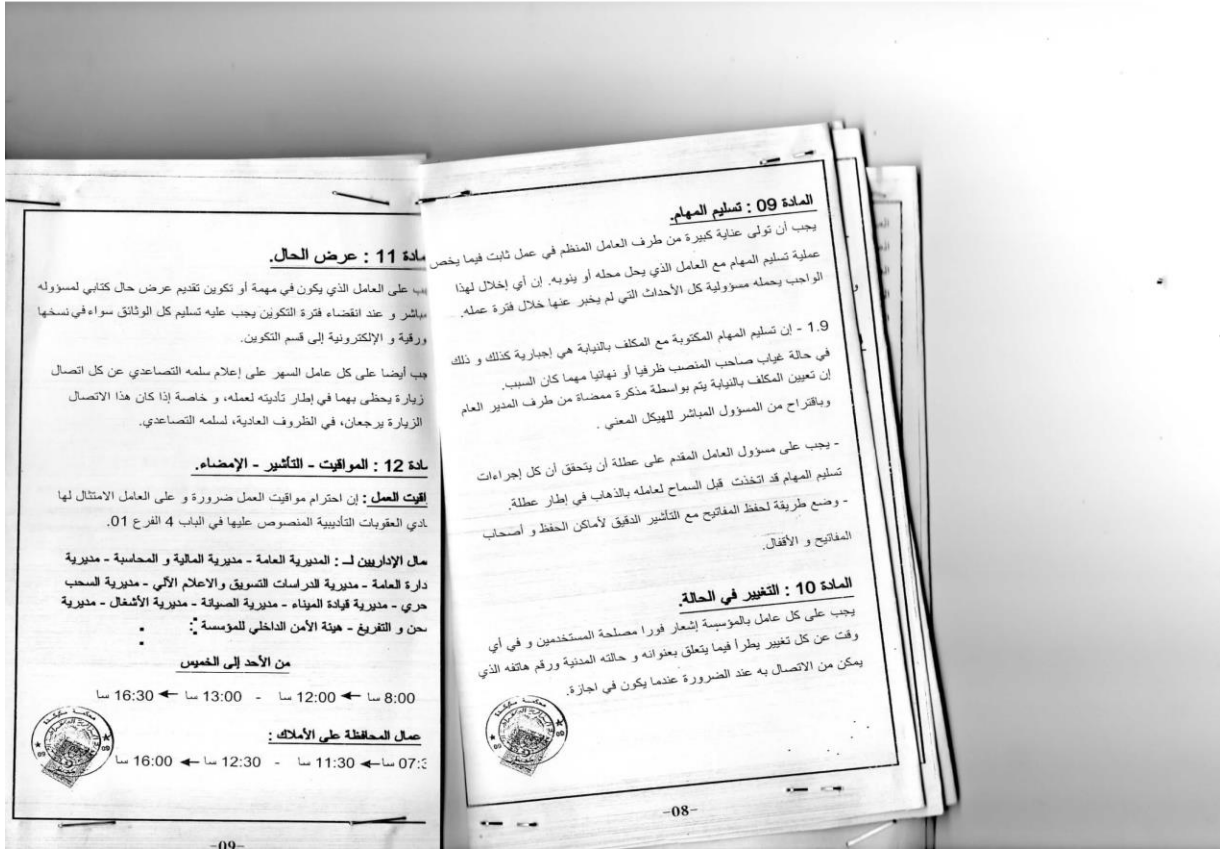 المادة 09 : تسليم المهام.
يجب أن تولى عناية كبيرة من طرف العامل المنظم في عمل ثابت فيما يخص
عملية تسليم المهام مع العامل الذي يحل محله أو ينوبه. إن أي إخلال لهذا
الواجب يحمله مسؤولية كل الأحداث التي لم يخبر عنها خلال فترة عمله.
1.9 - إن تسليم المهام المكتوبة مع المكلف بالنيابة هي إجبارية كذلك و ذلك
في حالة غياب صاحب المنصب ظرفيا أو نهائيا مهما كان السبب.
إن تعيين المكلف بالنيابة يتم بواسطة مذكرة ممضاة من طرف المدير العام
وباقتراح من المسؤول المباشر للهيكل المعني .
- يجب على مسؤول العامل المقدم على عطلة أن يتحقق أن كل إجراءات
تسليم المهام قد اتخذت قبل السماح لعامله بالذهاب في إطار عطلة.
- وضع طريقة لحفظ المفاتيح مع التأشير الدقيق لأماكن الحفظ و أصحاب
المفاتيح و الأقفال.
المادة 10 : التغيير في الحالة.
يجب على كل عامل بالمؤسسة إشعار فورا مصلحة المستخدمين و في أي
وقت عن كل تغيير يطرأ فيما يتعلق بعنوانه و حالته المدنية ورقم هاتفه الذي
يمكن من الاتصال به عند الضرورة عندما يكون في اجازة.
-08-
مادة 11 : عرض الحال.
يب على العامل الذي يكون في مهمة أو تكوين تقديم عرض حال كتابي لمسؤوله
مباشر و عند انقضاء فترة التكوين يجب عليه تسليم كل الوثائق سواء في نسخها
ورقية و الإلكترونية إلى قسم التكوين.
جب أيضا على كل عامل السهر على إعلام سلمه التصاعدي عن كل اتصال
زيارة يحظى بهما في إطار تأديته لعمله، و خاصة إذا كان هذا الاتصال
الزيارة يرجعان، في الظروف العادية، لسلمه التصاعدي.
مادة 12 : المواقيت - التأشير - الإمضاء.
اقيت العمل : إن احترام مواقيت العمل ضرورة و على العامل الامتثال لها
ادي العقوبات التأديبية المنصوص عليها في الباب 4 الفرع 01.
مال الإداريين لـ : المديرية العامة - مديرية المالية و المحاسبة - مديرية
دارة العامة - مديرية الدراسات التسويق والاعلام الآلي - مديرية السحب
حري - مديرية قيادة الميناء - مديرية الصيانة - مديرية الأشغال - مديرية
حن و التفريغ - هيئة الأمن الداخلي للمؤسسة :
من الأحد إلى الخميس
8:00 سا ← 12:00 سا - 13:00 سا ← 16:30 سا
عمال المحافظة على الأملاك :
07:3 سا ← 11:30 سا - 12:30 سا ← 16:00 سا
-09-